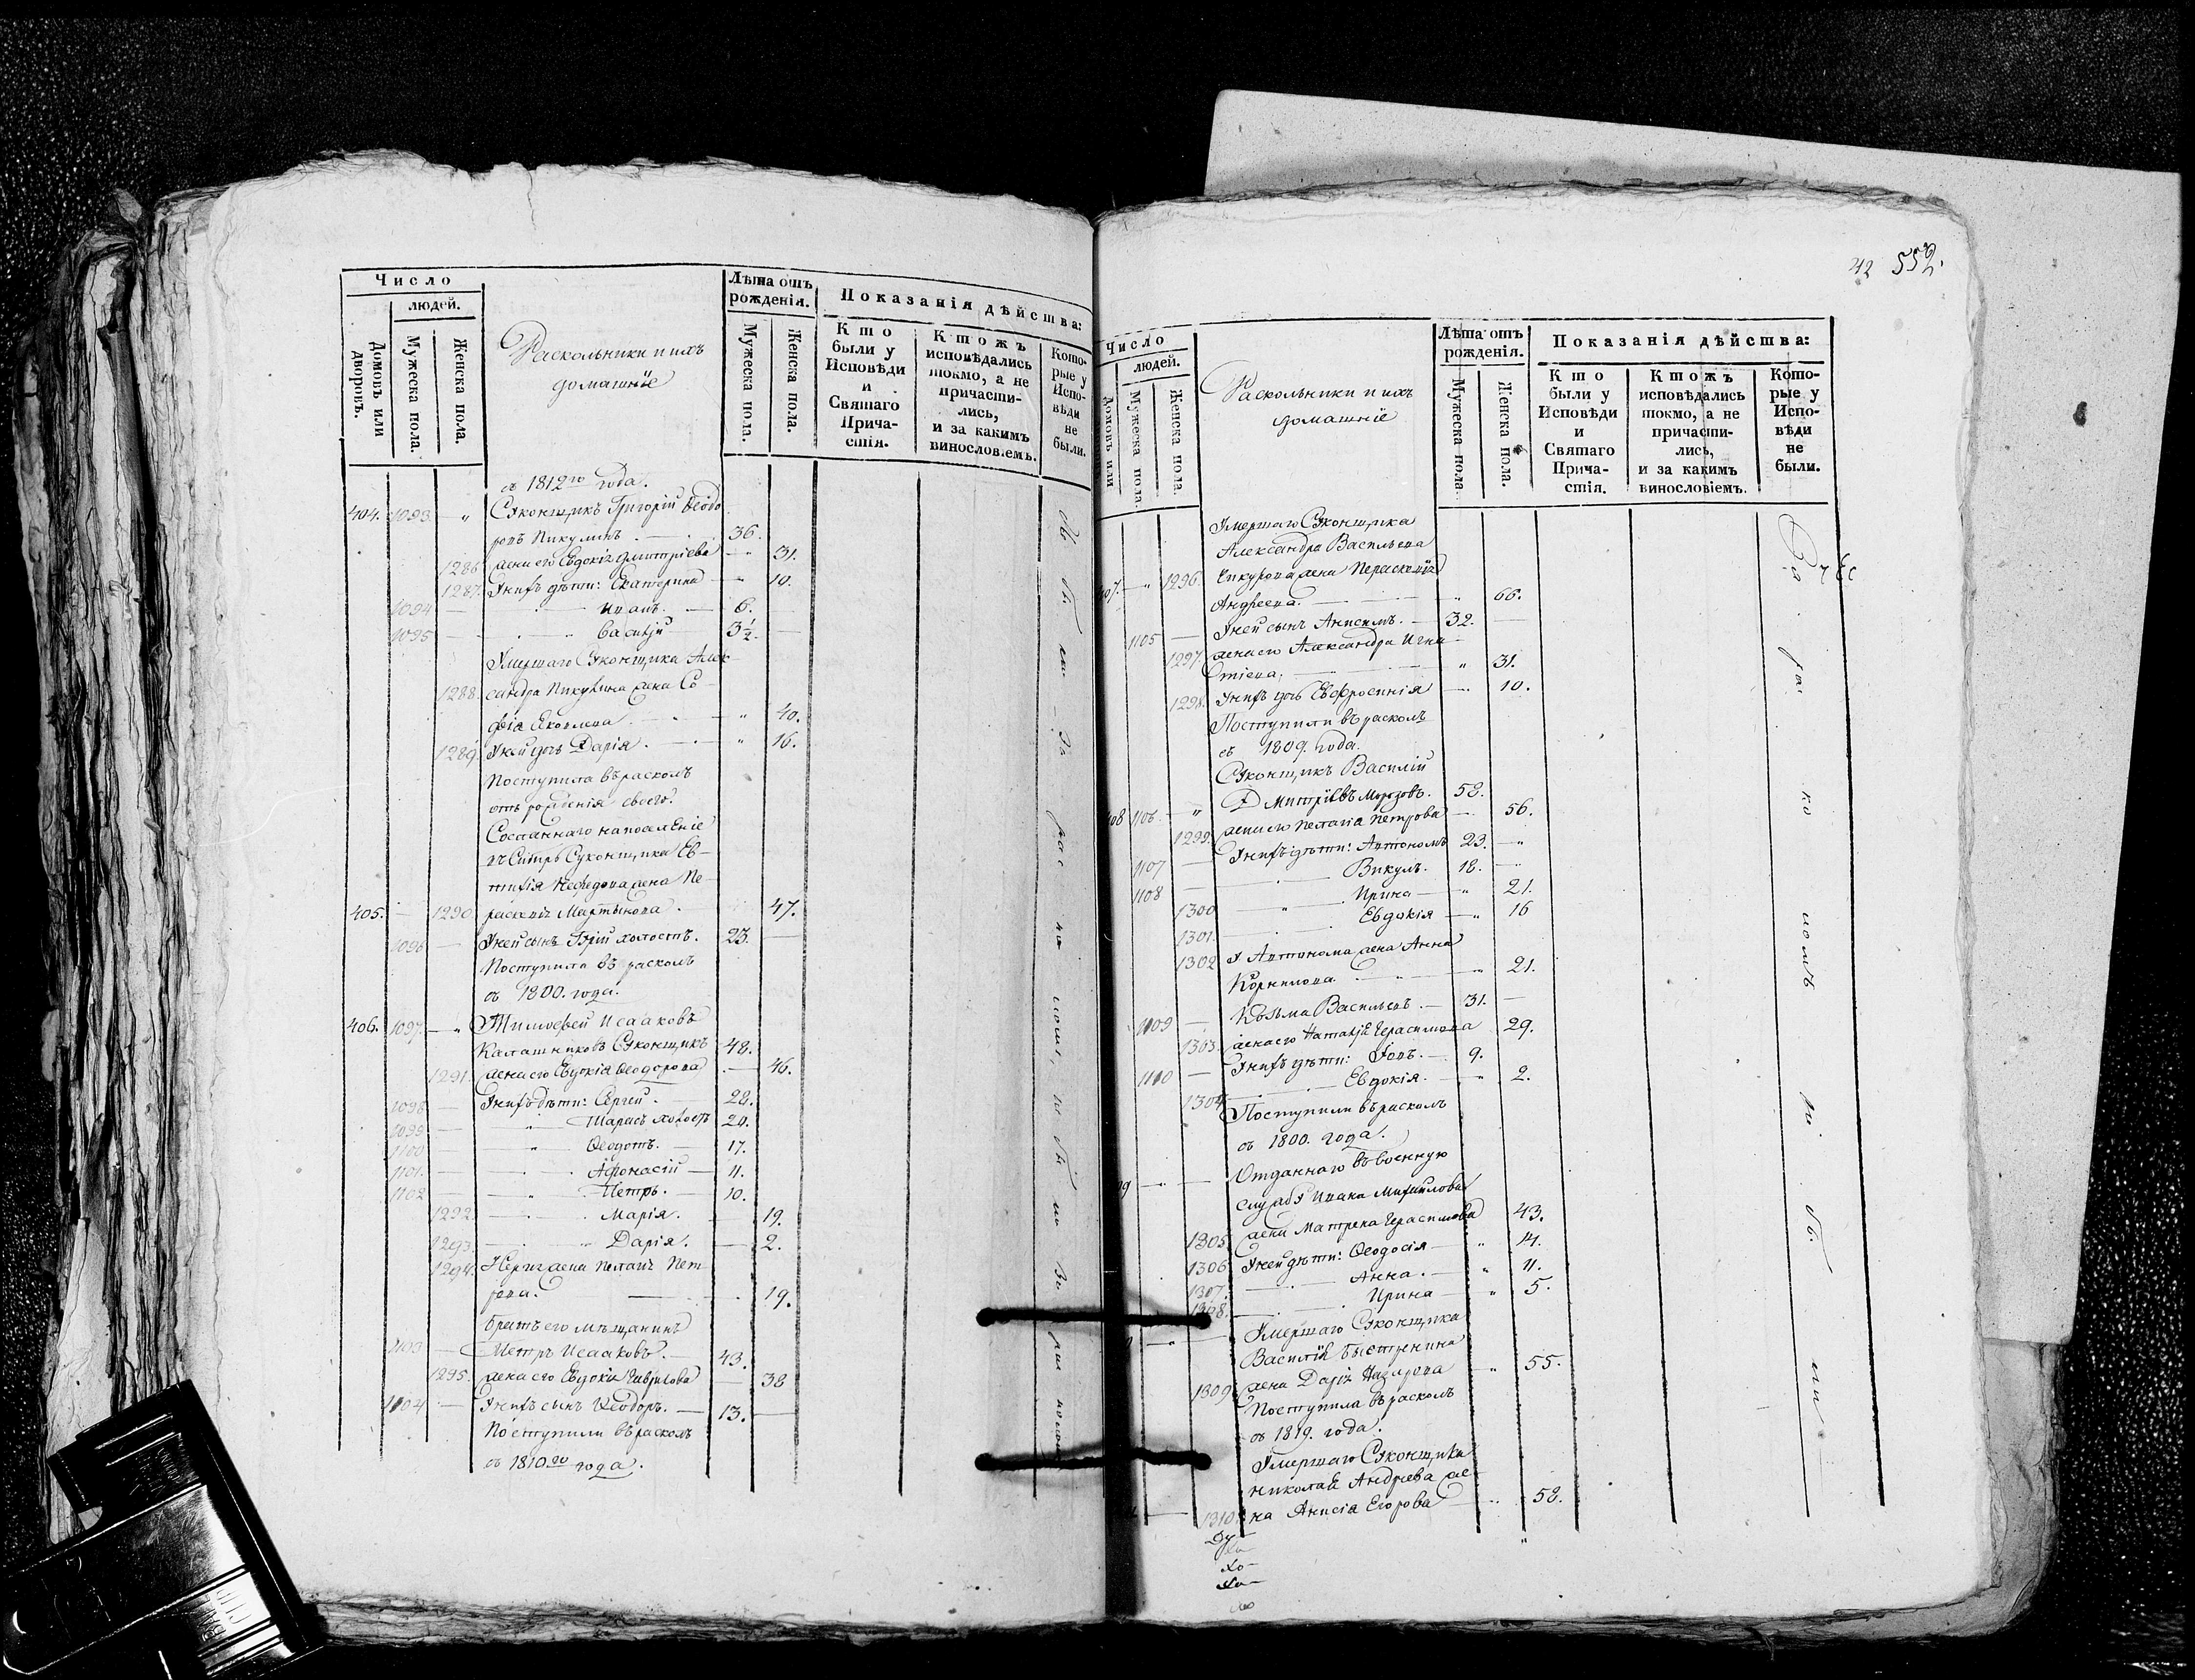 Число
людей.
Домовъ или дворовъ.
Мужеска пола.
Женска пола.
Раскольники и ихъ
домашнїе
Лѣта отъ
рожденія.
Мужеска пола.
Женска пола.
Показанія дѣйства:
Кто
были у
Исповѣди
и
Святаго
Прича-
стія.
Ктожъ
исповѣдались
токмо, а не
причасти-
лись,
и за какимъ
винословіемъ.
Кото-
рые у
Испо-
вѣди
не
были.
съ 1812го года.
404. 1093. „ Суконщикъ Григорій Ѳеодо
ровъ Никулинъ . 36.
1286 жена его Евдокія Дмитріева „ 31.
1287. У нихъ дѣти: Екатерина „ 10.
1094 Иванъ. 6.
1095 Василій 3½.
Умершаго Суконщика Алек
1288. сандра Никулина жена Со-
фія Яковлева. „ 40.
1289. У ней дочь Дарія. „ 16.
Поступила въ расколъ
отъ рожденія своего.
Сосланнаго на поселеніе
въ Сибирь Суконщика Ев-
тихія Нефедова жена Пе-
405. 1290. раскевія Мартынова. 47.
1096 У ней сынъ Гурій холостъ. 23.
Поступила въ расколъ
съ 1800. года.
406. 1097. „ Тимоѳей Исааковъ
Калашниковъ Суконщикъ 48.
1291. жена его Евдокія Ѳеодорова 46.
1098 У нихъ дѣти: Сергей. 28.
1099 Тарасъ холостъ 20.
1100 Ѳеодотъ. 17.
1101. Афонасій 11.
1102 Петръ. 10.
1292. Марія. 19.
1293. Дарія. 2.
1294. Сергия жена Пелагия Пет
рова. 19.
Братъ его мѣщанинъ
1103 Петръ Исааковъ. 43.
1295. жена его Евдокия Гаврилова 38
1104 У нихъ сынъ Ѳеодоръ. 13.
Поступили въ расколъ
съ 1810го года.
42 552.
Число
людей.
Домовъ или
Мужеска пола.
Женска пола.
Раскольники и ихъ
домашнїе
Лѣта отъ
рожденія.
Мужеска пола.
Женска пола.
Показанія дѣйства:
Кто
были у
Исповѣди
и
Святаго
Прича-
стія.
Ктожъ
исповѣдались
токмо, а не
причасти-
лись,
и за какимъ
винословіемъ.
Кото-
рые у
Испо-
вѣди
не
были.
Умершаго Суконщика
Александра Васильева
07. „ 1296. жена Пераскевїя
Андреева. „ 66.
1105 У ней сынъ Анисимъ. 32.
1297. жена его Александра Игна-
тіева. „ 31.
1298. У нихъ дочь Евфросинія 10.
Поступили въ расколъ
съ 1809. года.
Суконщикъ Василій
08 1106. „ Дмитріевъ Морозовъ. 58.
1299. жена его Пелагія Петрова 56.
1107 У нихъ дѣти: Автономъ 23. „
1108 Викулъ. 18.
1300 Ирина „ 21.
1301. Евдокія „ 16
1302 у Автонома жена Анна
Корнилова. „ 21.
1109 Козьма Васильевъ. 31.
1303. жена его Наталья Герасимова 29.
1110 У нихъ дѣти: Іовъ. 9.
1304 Евдокія. „ 2.
Поступили въ расколъ
съ 1800. года.
09 Отданнаго въ военную
службу Ивана Михайлова
1305. жена Матрена Герасимова 43.
1306 У ней дѣти: Ѳеодосія „ 14.
1307. Анна. „ 11.
1308. Ирина „ 5.
Умершаго Суконщика
Василія Быстренина
1309 жена Дарія Назарова „ 55.
Поступила въ расколъ
съ 1819. года.
Умершаго Суконщика
Николая Андреева же-
1310. на Анисія Егорова 58.
Ду
хо